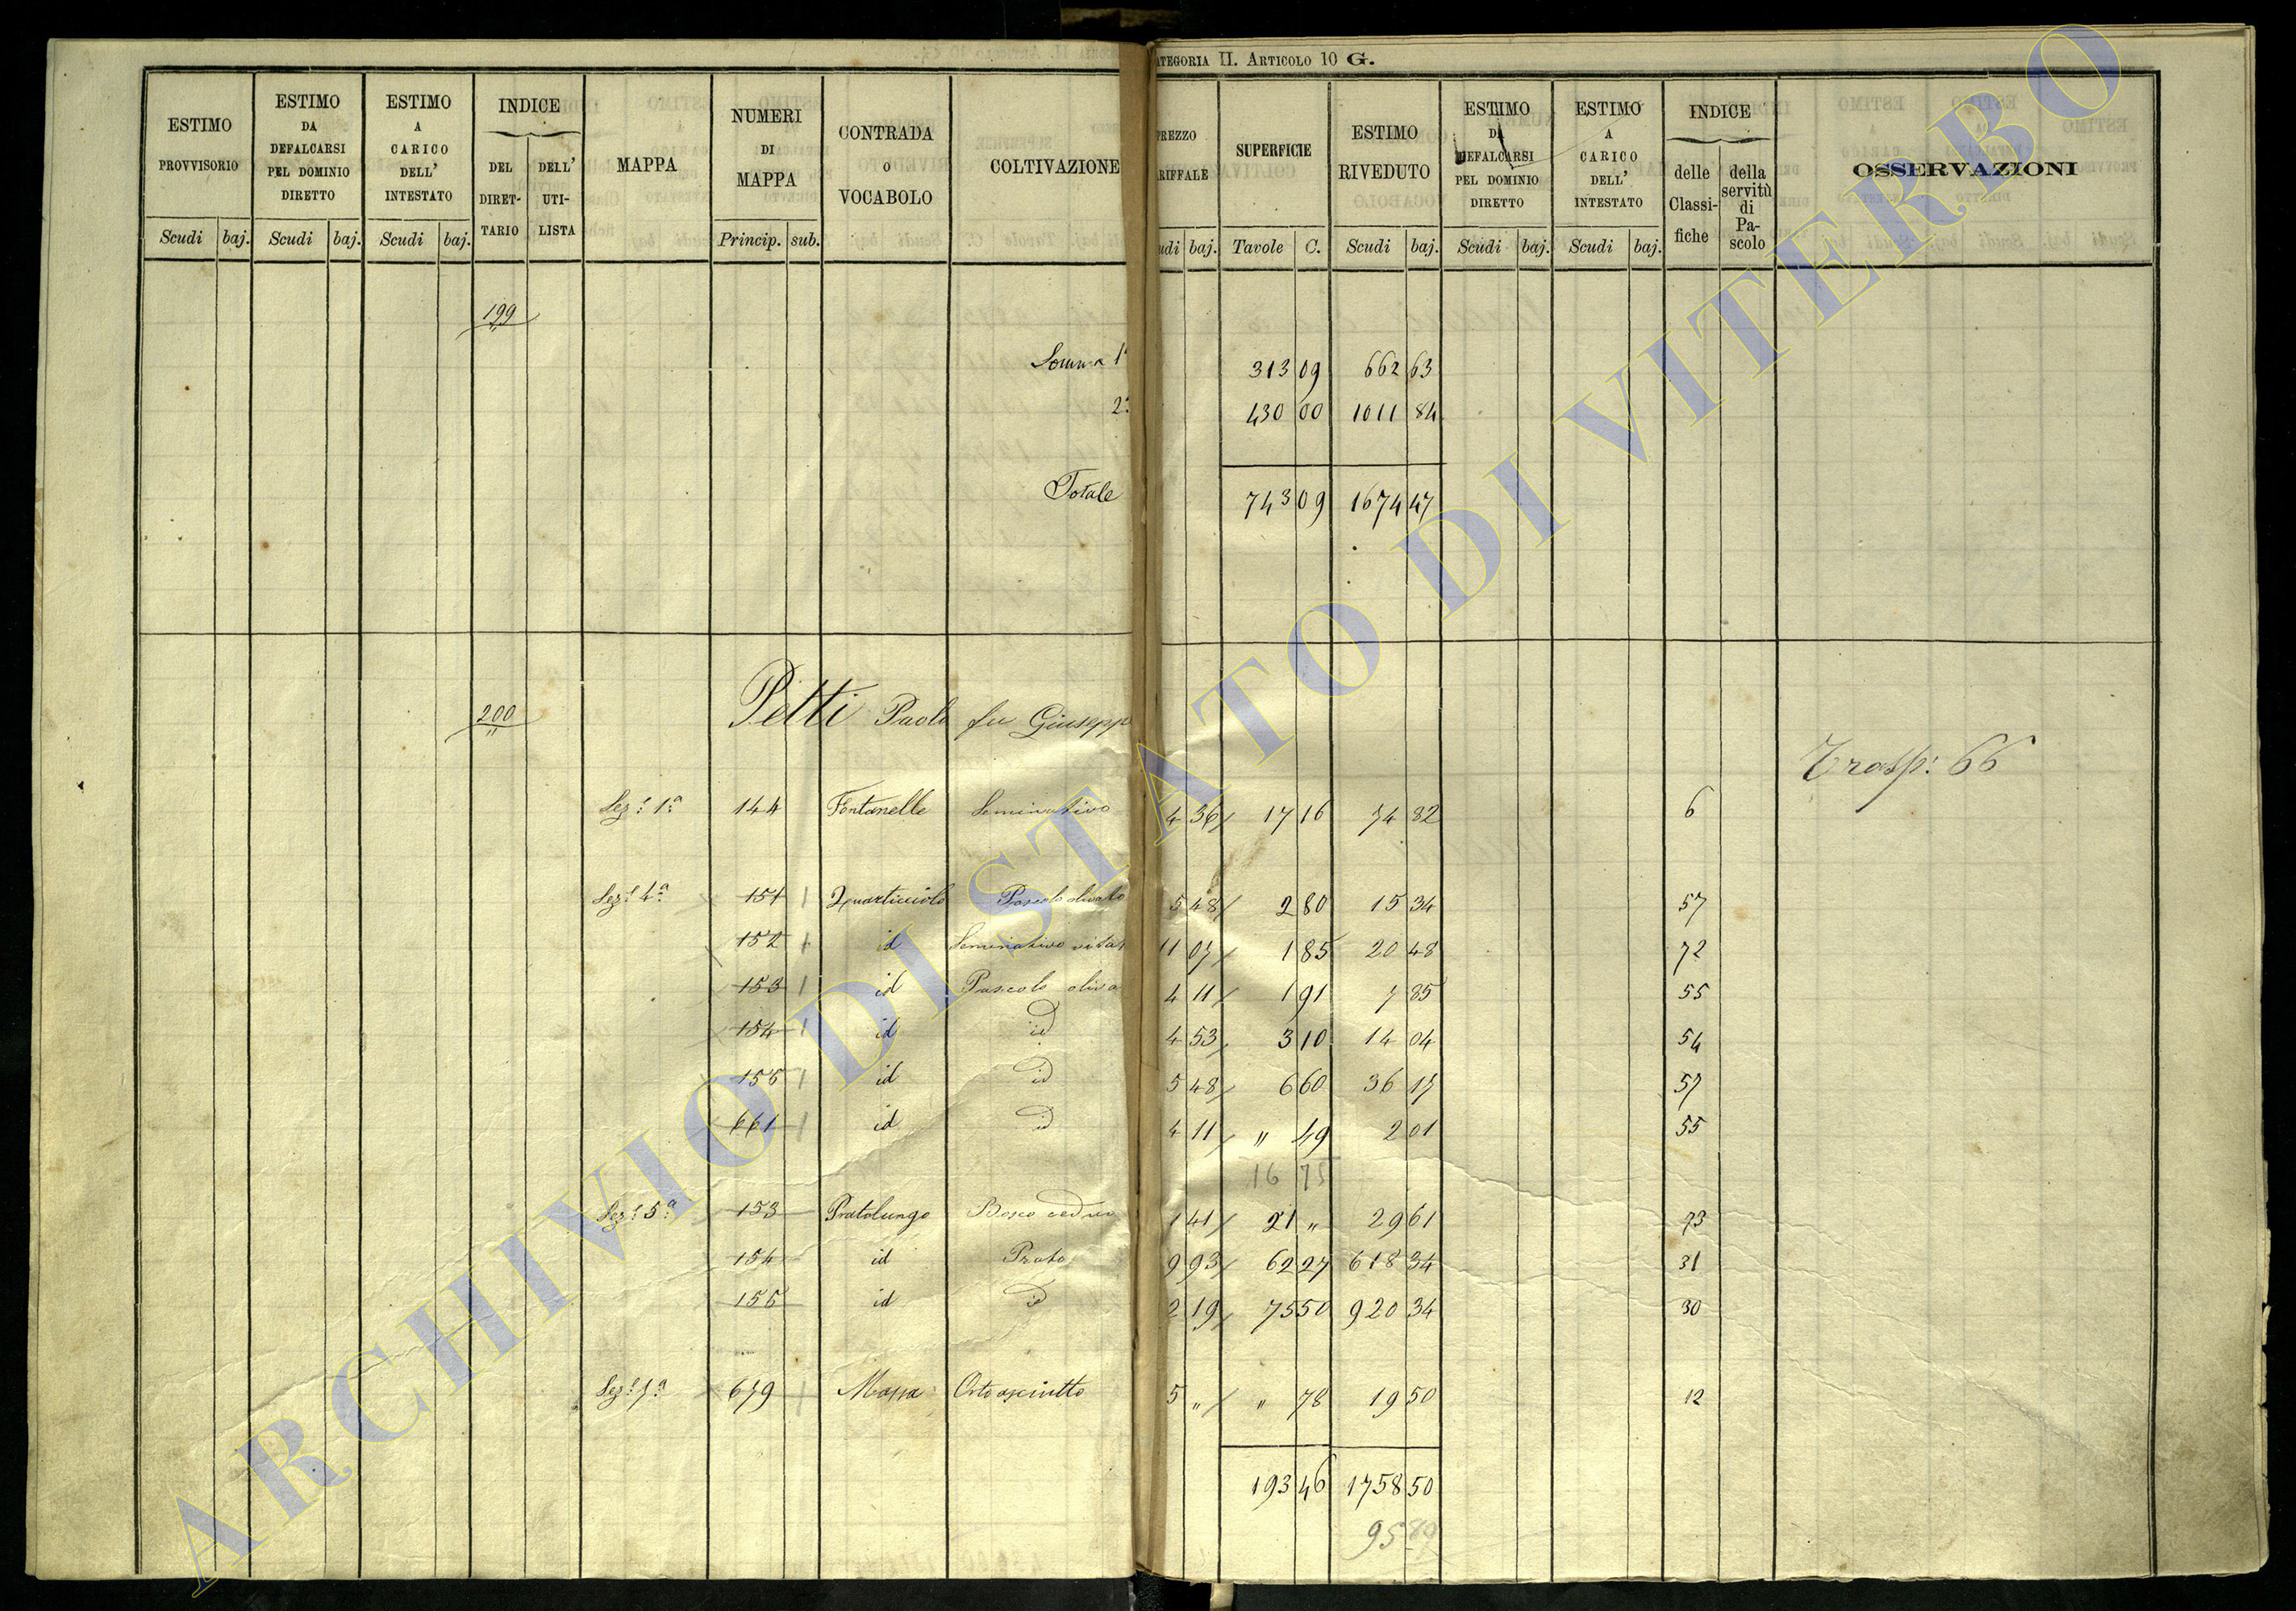 CATEGORIA II. ARTICOLO 10 G.
ESTIMO PROVVISORIO Scudi baj. ESTIMO DA DEFALCARSI PEL DOMINIO DIRETTO Scudi baj. ESTIMO A CARICO DELL' INTESTATO Scudi baj. INDICE DEL DIRETTARIO DELL' UTILISTA MAPPA NUMERI DI MAPPA Princip. sub. CONTRADA o VOCABOLO COLTIVAZIONE PREZZO TARIFFALE Scudi baj. SUPERFICIE Tavole C. ESTIMO RIVEDUTO Scudi baj. ESTIMO DA DEFALCARSI PEL DOMINIO DIRETTO Scudi baj. ESTIMO A CARICO DELL' INTESTATO Scudi baj. INDICE delle Classifiche della servitù di Pascolo OSSERVAZIONI
199
Somma 1ª 313 09 662 63
2ª 430 00 1011 84
Totale 743 09 1674 47
200 Pitti Paolo fu Giusepp
Trasp: 66
Sez.e 1ª 144 Fontanelle Seminativo 4 36 17 16 74 82 6
Sez.e 4ª 151 Quarticciolo Pascolo olivato 5 48 2 80 15 34 57
152 id Seminativo vitat 11 07 1 85 20 48 72
153 id Pascolo oliva 4 11 1 91 7 85 55
154 id id 4 53 3 10 14 04 54
155 id id 5 48 6 60 36 17 57
661 id id 4 11 " 49 2 01 55
16 75
Sez.e 5ª 153 Pratolungo Bosco ceduo 1 41 21 " 29 61 93
154 id Prato 9 93 62 27 618 34 31
155 id id 2 19 75 50 920 34 30
Sez.e 7ª 679 Massa Orto asciutto 5 " " 78 19 50 12
193 46 1758 50
95
ARCHIVIO DI STATO DI VITERBO